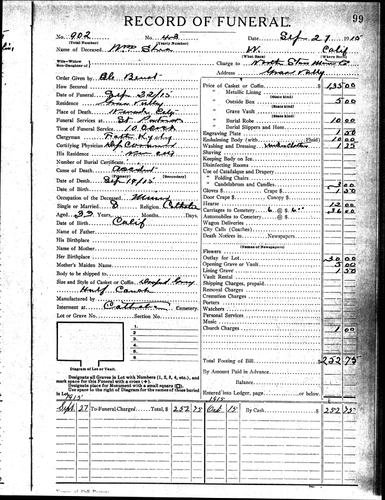 99
RECORD OF FUNERAL.
No. 902 No. 43 Sep 27 1915
(Total Number) (Yearly Number) (Date of Entry)
Name of Deceased Wm W. Calif
(What Race) (Where Born)
Charge to North Star
Address Grass Valley
Order Given by
How Secured
Date of Funeral Sep 22/15
Residence Grass Valley
Place of Death
Funeral Services at
Time of Funeral Service 10 o'clock
Clergyman
Certifying Physician
His Residence
Number of Burial Certificate
Cause of Death
Date of Death Sep 19/15
Date of Birth
Occupation of the Deceased Miner
Single or Married S Religion Catholic
Aged 32 Years, Months, Days.
Date of Birth Calif
Name of Father
His Birthplace
Name of Mother
Her Birthplace
Mother's Maiden Name
Body to be shipped to
Size and Style of Casket or Coffin
Half Couch
Manufactured by
Interment at Catholic Cemetery.
Lot or Grave No. Section No.
1.
2.
3.
4.
5.
6.
Diagram of Lot or Vault.
Designate all Graves in Lot with Numbers (1, 2, 3, 4, etc.), and mark space for this Funeral with a cross (+).
Designate place for Monument with a small square
Use space to right of Diagram for the names of those buried in Lot.
Price of Casket or Coffin $ 135.00
Metallic Lining
Outside Box 5.00
Grave Vault
Burial Robe 10.00
Burial Slippers and Hose
Engraving Plate 1.50
Embalming Body (with Fluid) 10.00
Washing and Dressing
Shaving
Keeping Body on Ice
Disinfecting Rooms
Use of Catafalque and Drapery
" Folding Chairs
" Candelabrum and Candles 3.00
Gloves $ Crape $ 1.50
Door Crape Canopy $
Hearse 12.00
Carriages to Cemetery 6 @ 6.00 36.00
Automobiles to Cemetery @
Wagon Deliveries
City Calls (Coaches)
Death Notices in Newspapers
(Names of Newspapers)
Flowers
Outlay for Lot 30.00
Opening Grave or Vault 5.00
Lining Grave 1.50
Vault Rental
Shipping Charges, prepaid
Removal Charges
Cremation Charges
Porters
Watchers
Personal Services
Music
Church Charges 1.00
Total Footing of Bill $ 252.75
By Amount Paid in Advance
Balance
Entered into Ledger, page or below.
1915 1915
Sept. 27 To Funeral Charges Total, $ 252 75 Oct 15 By Cash $ 252 75